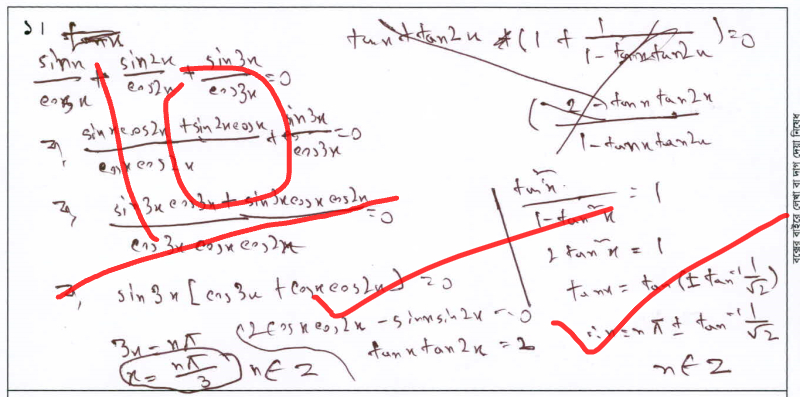 ১।
sinx/cosx + sin2x/cos2x + sin3x/cos3x = 0
⇒, (sinxcos2x + sin2xcosx)/(cosxcos2x) + sin3x/cos3x = 0
⇒, (sin3x cos3x + sin3xcosxcos2x)/(cos3x cosx cos2x) = 0
⇒, sin3x [cos3x + cosxcos2x] = 0
3x = nπ
x = nπ/3 n∈Z
2cosxcos2x - sinxsin2x = 0
tanxtan2x = 2
tanx + tan2x (1 + 1/(1-tanxtan2x)) = 0
(2 - tanx tan2x)/(1 - tanx tan2x)
tan²x/(1-tan²x) = 1
2tan²x = 1
tanx = tan(± tan⁻¹ 1/√2)
∴ x = nπ ± tan⁻¹ 1/√2
n∈Z
বক্সের বাইরে লেখা বা দাগ দেয়া নিষেধ